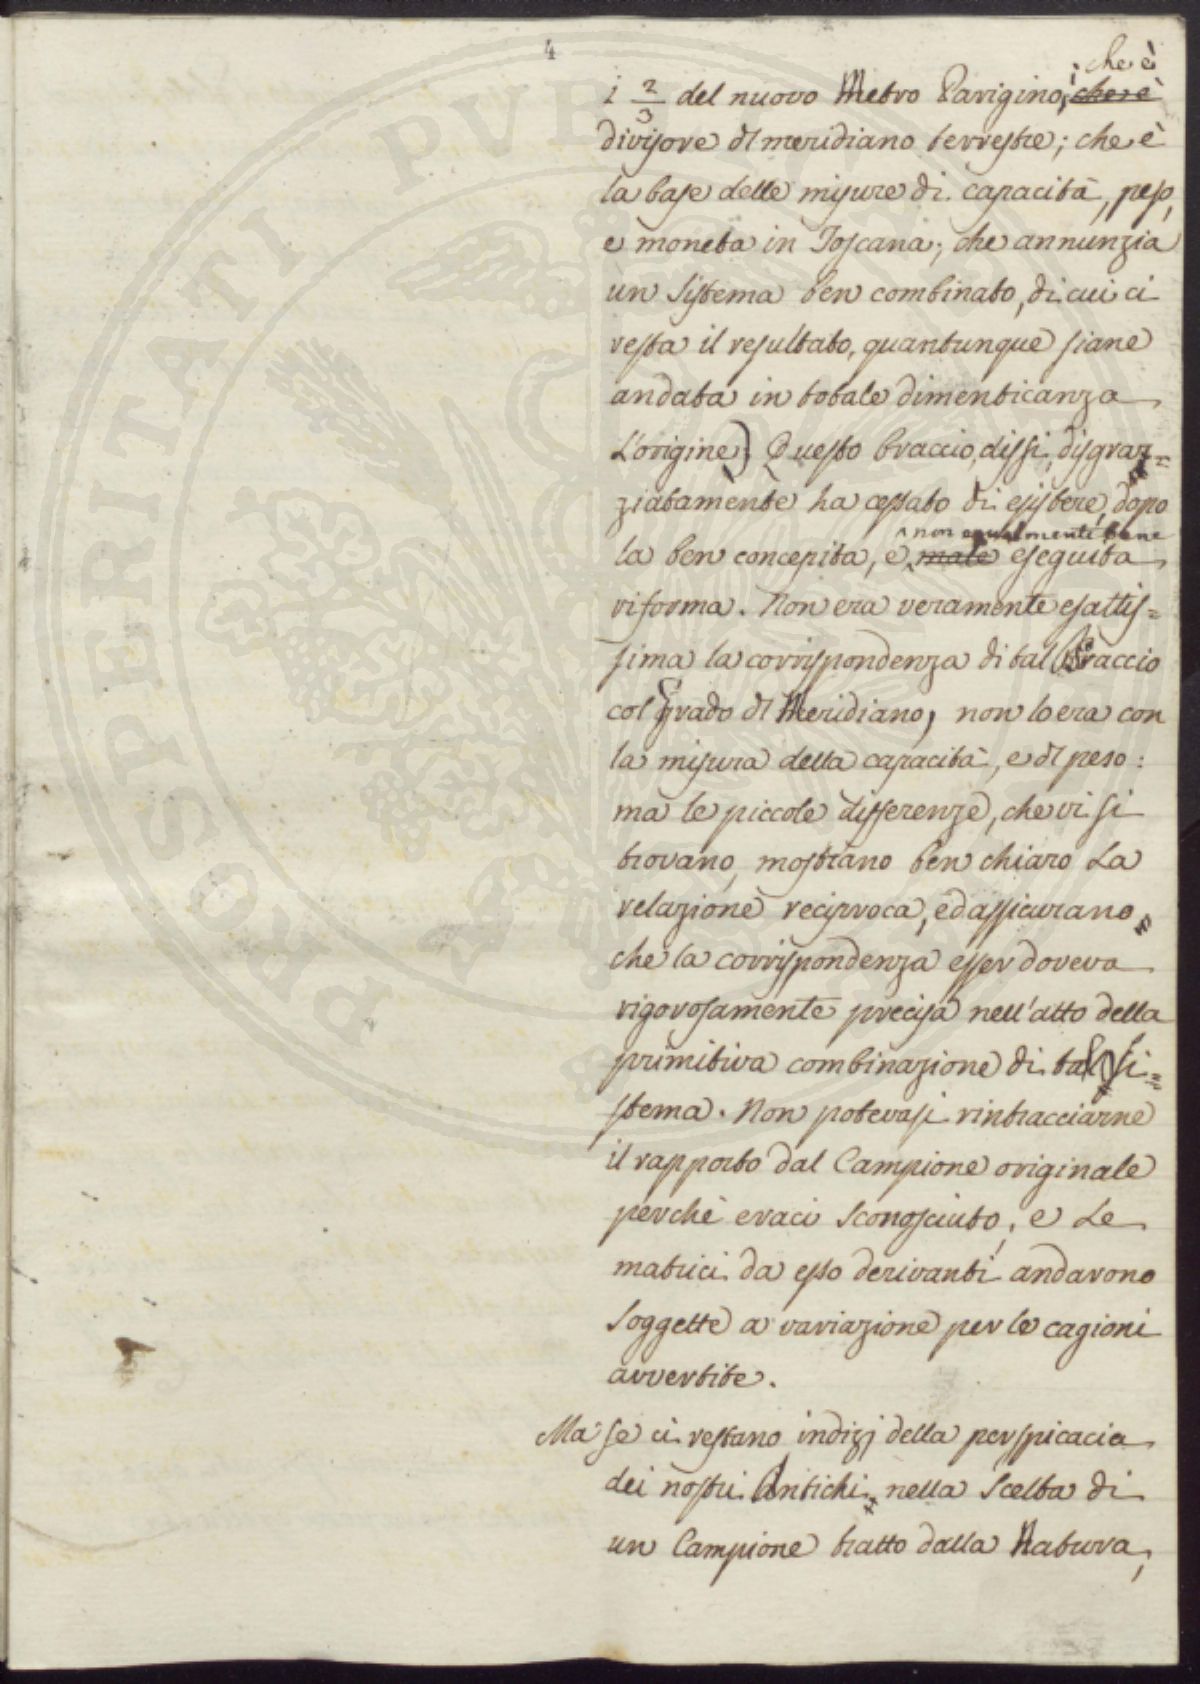 4
che è
i 2/3 del nuovo Metro Parigino; che è
divisore dl meridiano terrestre; che è
la base delle misure di capacità, peso,
e moneta in Toscana; che annunzia
un Sistema ben combinato, di cui ci
resta il resultato, quantunque siane
andata in totale dimenticanza
L'origine) Questo braccio, dissi, disgraz=
ziatamente ha cessato di esistere, dopo
non egualmente bene
la ben concepita, e male eseguita
riforma. Non era veramente esattis=
sima la corrispondenza di tal Braccio
col Grado dl Meridiano, non lo era con
la misura della capacità, e dl peso:
ma le piccole differenze, che vi si
trovano, mostrano ben chiaro La
relazione reciproca, ed assicurano
che la corrispondenza esser doveva
rigorosamente precisa nell'atto della
primitiva combinazione di tal Si=
stema. Non potevasi rintracciarne
il rapporto dal Campione originale
perchè eraci Sconosciuto; e Le
matrici da esso derivanti andarono
Soggette a variazione per le cagioni
avvertite.
Ma se ci restano indizj della perspicacia
dei nostri Antichi nella Scelta di
un Campione tratto dalla Natura,
PROSPERITATI PUBLI